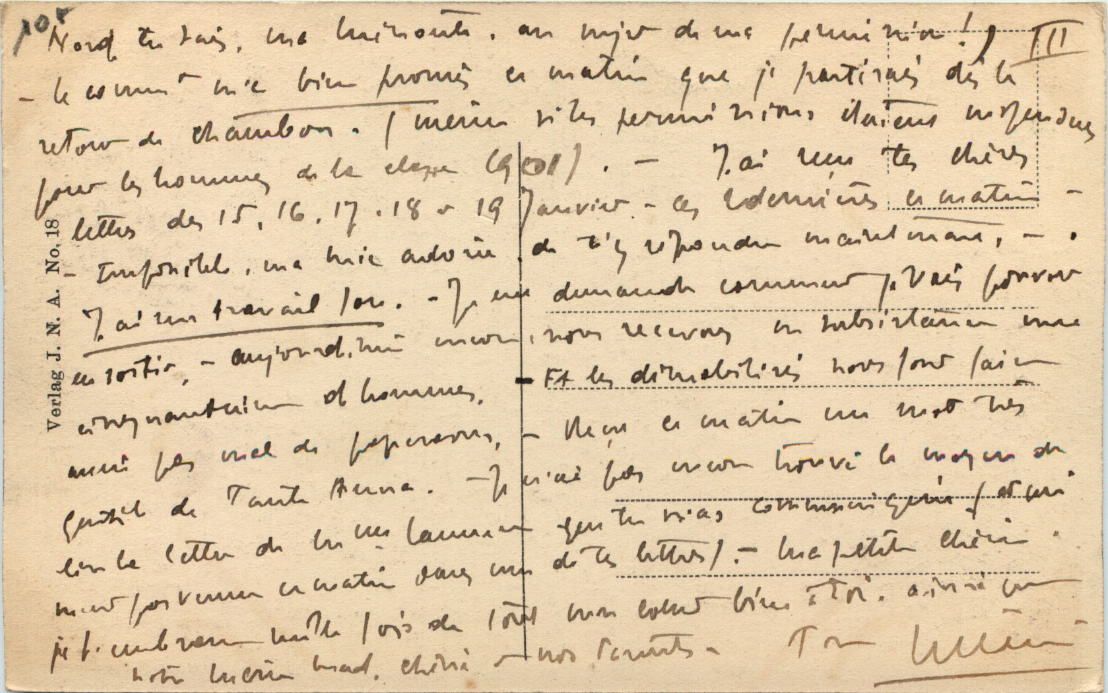 III
tu sais, ma au sujet de ma permission!)
- le m'a bien promis ce matin que je partirais dès le
retour de chambon. (même si les permissions étaient suspendues
pour les hommes de la classe 1901). - J'ai reçu tes chères
lettres des 15, 16, 17, 18 et 19 Janvier - ces 2 dernières ce matin -
- Impossible, ma mie adorée, de t'y répondre maintenant, -
J'ai un travail fou. - Je me demande comment je vais pouvoir
en sortir, - aujourd'hui encore, nous recevons en subsistance une
cinquantaine d'hommes. - Et les démobilisés nous font faire
aussi pas mal de paperasses, - Reçu ce matin un mot très
gentil de Tante Anna. - Je n'ai pas encore trouvé le moyen de
lire la lettre de que tu m'as communiquée (et qui
m'est parvenue ce matin dans une de tes lettres). - Ma petite chérie
je t'embrasse mille fois de tout mon cœur bien à toi, ainsi que
notre chérie et nos Parents - Ton
Verlag J. N. A. No. 18